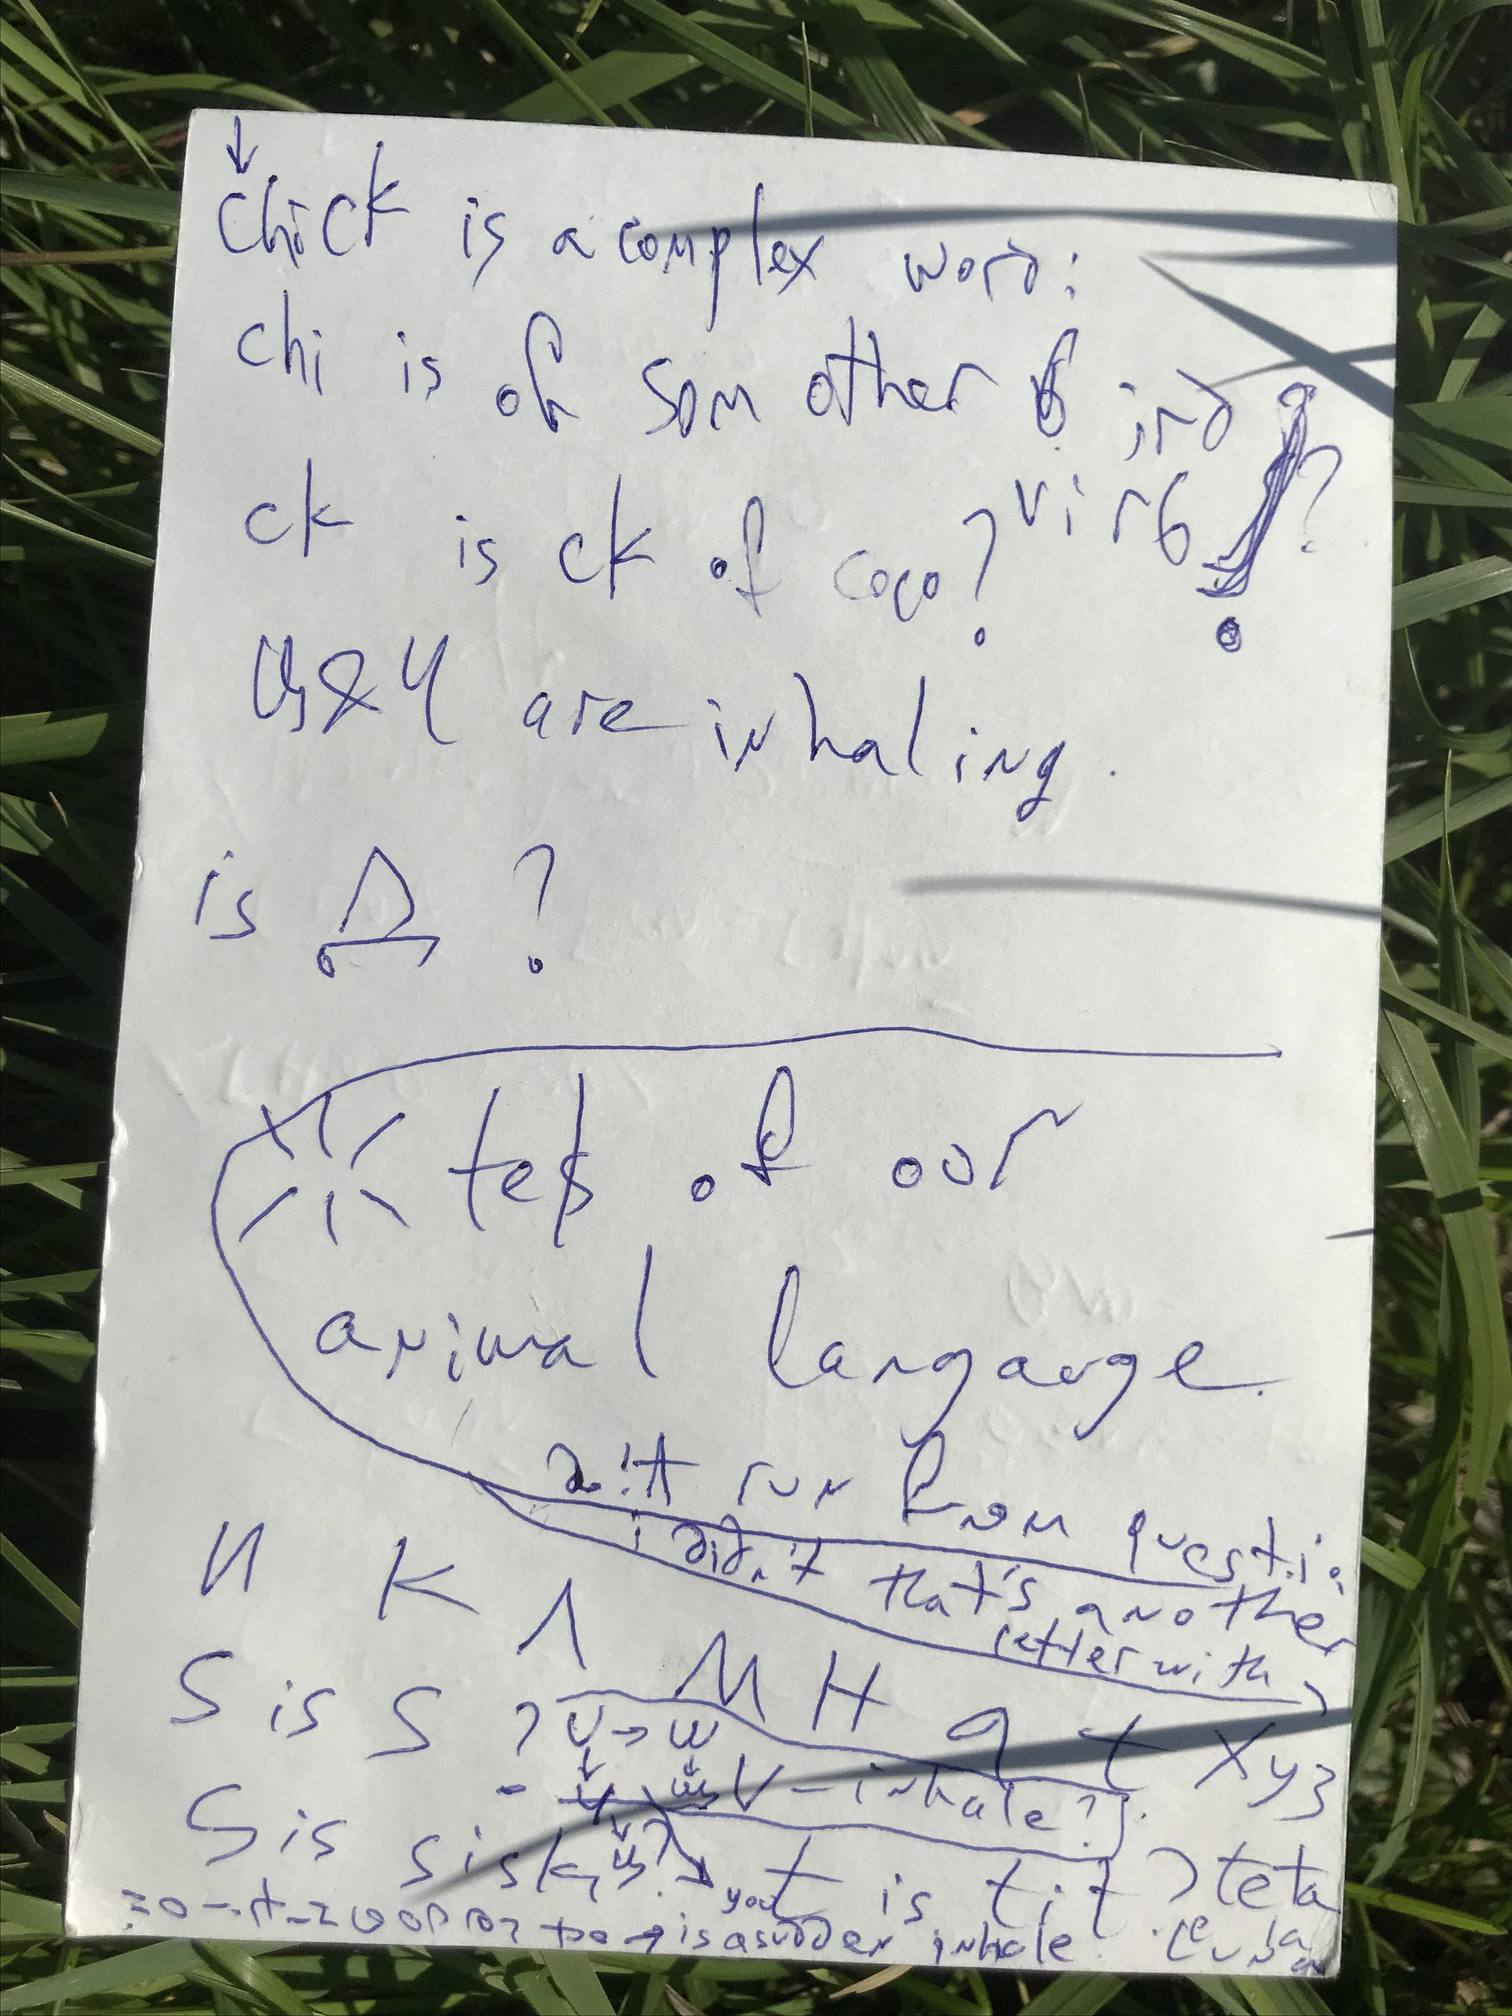 chick is a complex word:
chi is of som other b ird
ck is ck of coco? virb ?
& Ч are inhaling.
is Д ?
of our
animal langauge.
run from questi
i didn't that's another
letter with
И K Λ M H q t x y z
S is S ?
v → w
V - inhale?
S is sisk t is tit ? teta
you
is a sudden inhale